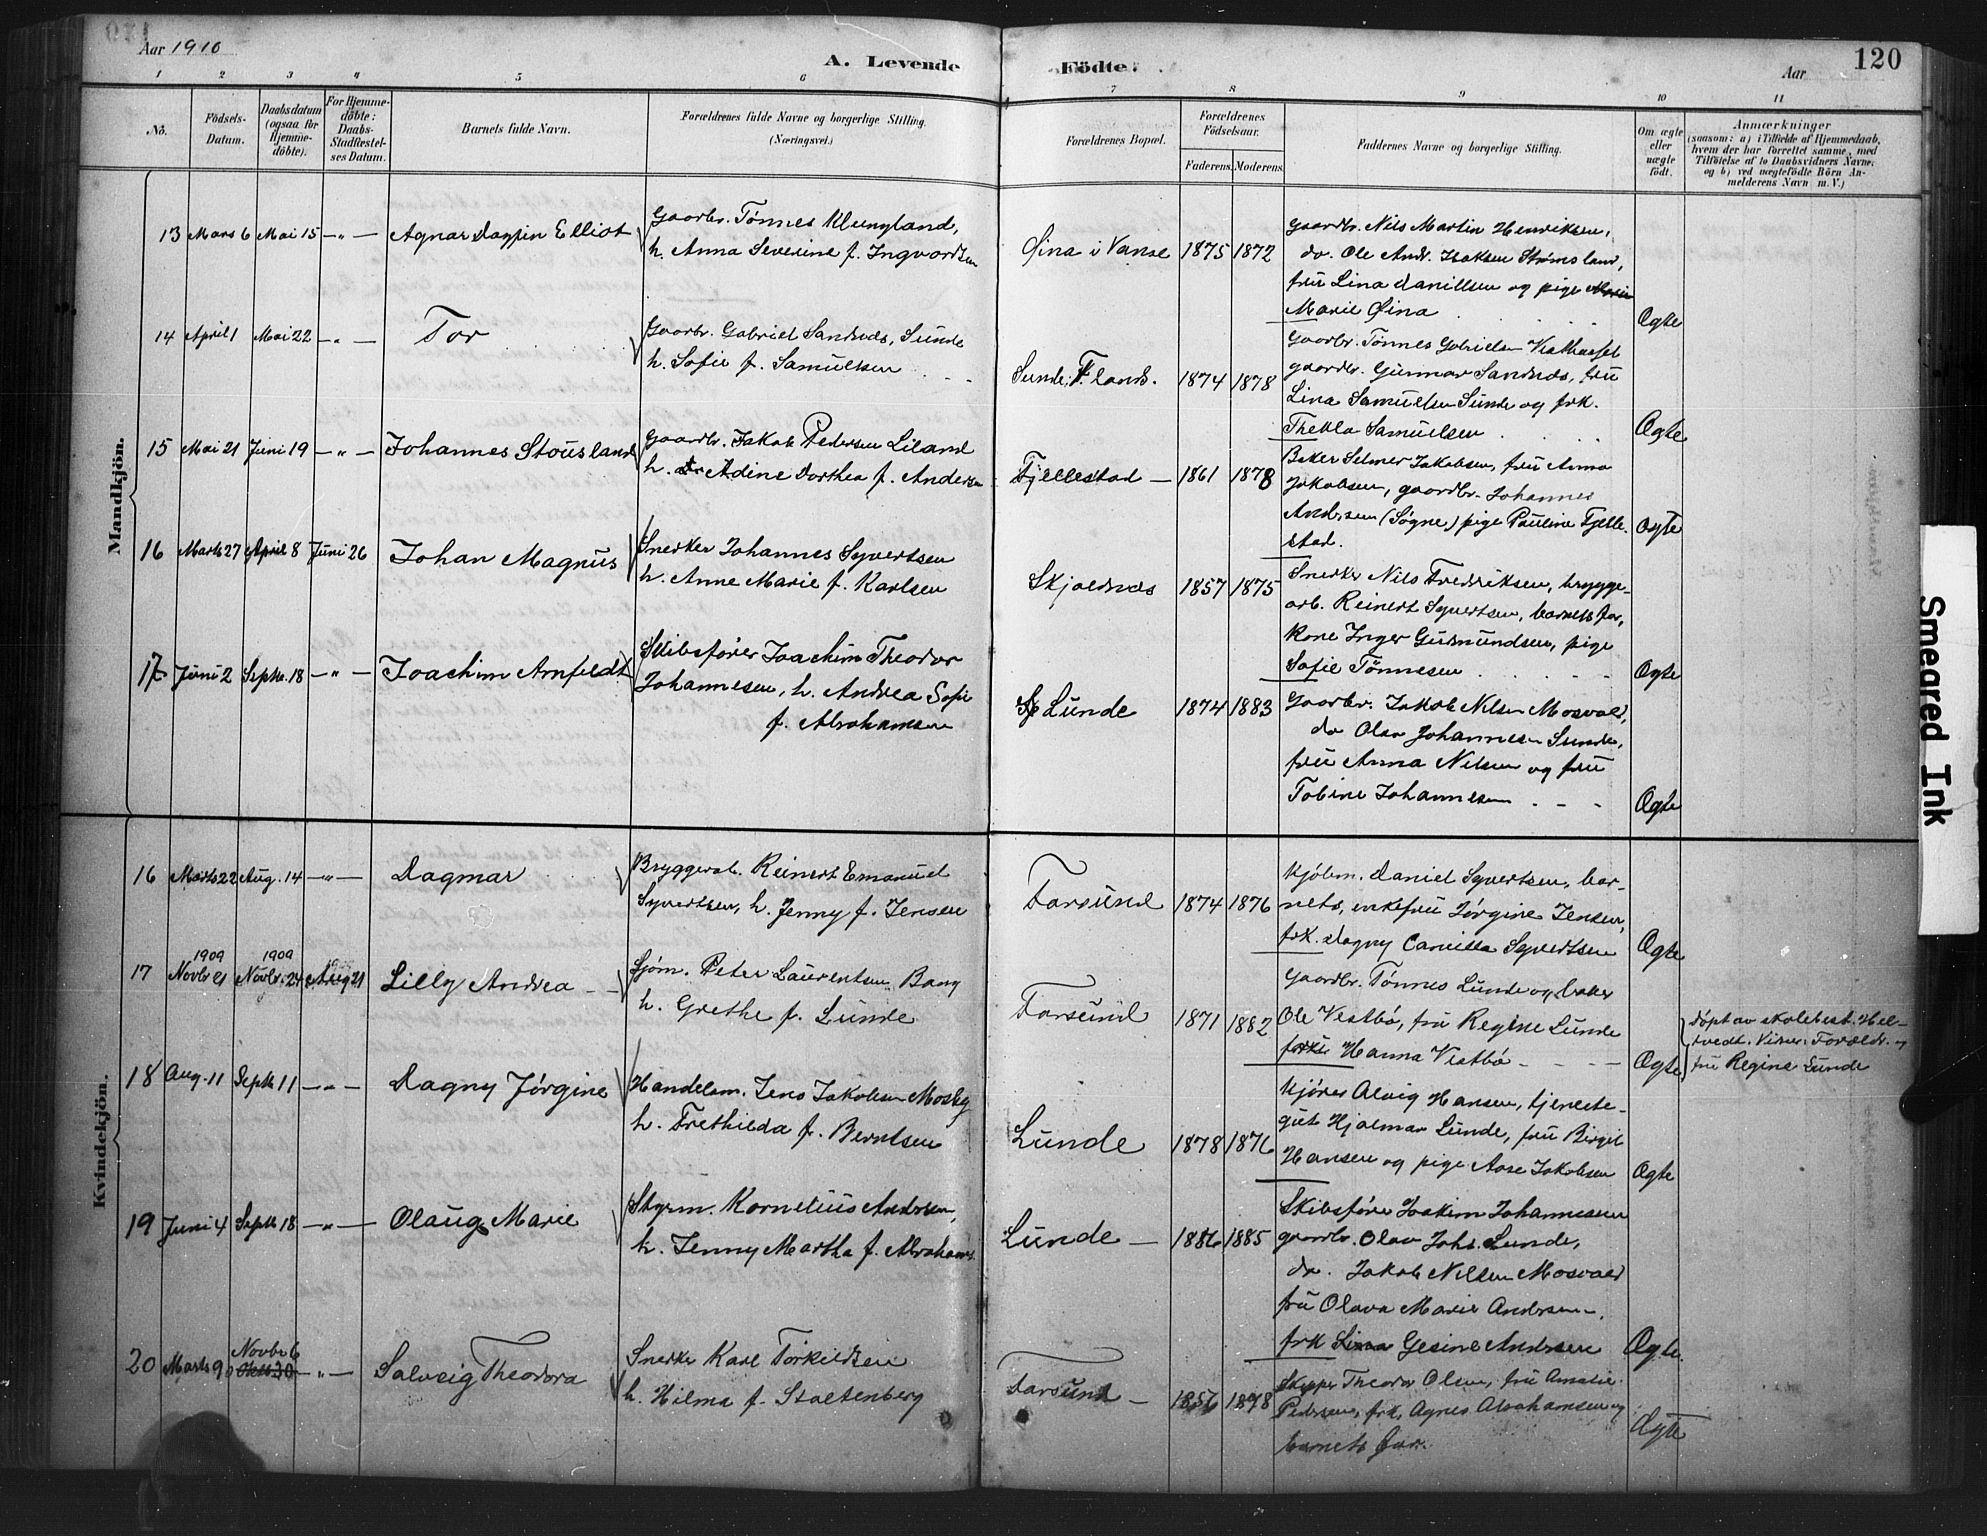 Aar 1910
A. Levende Födte.
Aar
120
1 2 3 4 5 6 7 8 9 10 11
No.
Födsels-Datum.
Daabsdatum (ogsaa for Hjemme-döbte).
For Hjemme-döbte: Daabs-Stadfæstel-ses Datum.
Barnets fulde Navn.
Forældrenes fulde Navne og borgerlige Stilling.
(Næringsvei.)
Forældrenes Bopæl.
Forældrenes Födselsaar.
Faderens. Moderens.
Faddernes Navne og borgerlige Stilling.
Om ægte eller uægte födt.
Anmærkninger
(saasom: a) i Tilfælde af Hjemmedaab,
hvem der har forrettet samme, med
Tilföielse af to Daabsvidners Navne;
og b) ved uægtefödte Börn An-
melderens Navn m. V.)
Mandkjön.
13 Mars 6 Mai 15 — " — Agnar Dagfin Elliot
Gaardbr. Tønnes Klungland,
h. Anna Severine f. Ingvardsen
Øina i Vanse 1875 1872
Gaardbr. Nils Martin Henriksen,
do. Ole Andr. Isaksen Strømsland,
fru Lina Danillsen og pige
Marie Øina
Ægte
14 April 1 Mai 22 — " — Tor
Gaardbr. Gabriel Sandnæs, Sunde
h. Sofie f. Samuelsen
Sunde, F. land. 1874 1878
Gaardbr. Tønnes Gabrielsen
gaardbr. Gunnar Sandnæs, fru
Lina Samuelsen Sunde og frk.
Thekla Samuelsen
Ægte
15 Mai 21 Juni 19 — " — Johannes Stousland
Gaardbr. Jakob Pedersen Liland
h. Adine Dorthea f. Andersen
Fjellestad — 1861 1878
Baker Selmer Jakobsen, fru Anna
Jakobsen, gaardbr. Johannes
Andersen (Søgne) pige Pauline Fjelle-
stad.
Ægte
16 Marts 27 April 8 Juni 26 Johan Magnus
Snedker Johannes Syvertsen
h. Anne Marie f. Karlsen
Skjoldnæs 1857 1875
Snedker Nils Fredriksen, brygge-
arb. Reinert Syvertsen, barnets far,
Kone Inger Gudmundsen, pige
Sofie Tønnesen
Ægte
17 Juni 2 Septb. 18 — " — Joachim Arnfeldt
Skibsfører Joachim Theodor
Johannesen, h. Andrea Sofie
f. Abrahamsen
Lunde 1874 1883
Gaardbr. Jakob Nilsen Mosvold,
do Olav Johannesen Sunde,
fru Anna Nilsen og fru
Tobine Johannesen
Ægte
Kvindekjön.
16 Marts 22 Aug. 14 — " — Dagmar
Bryggearb. Reinert Emanuel
Syvertsen, h. Jenny f. Jensen
Farsund 1874 1876
Kjøbm. Daniel Syvertsen, bar-
nets, enkefru Jørgine Jensen,
frk. Dagny Camilla Syvertsen
Ægte
1909 1909
17 Novbr 21 Novbr. 24 Aug 21 Lilly Andrea
Sjøm. Peter Laurentsen Bang
h. Grethe f. Lunde
Farsund 1871 1882
Gaardbr. Tønnes Lunde og baker
Ole Vestbø, fru Regine Lunde
Hanna Vistbø
Ægte
døpt av skolebest. Hel-
tvedt. Vidner: Foreldr. og
fru Regine Lunde
18 Aug. 11 Septb 11 — " — Dagny Jørgine
Handelsm. Jens Jakobsen Mosby
h. Frethilda f. Berntsen
Lunde 1878 1876
Kjører Alvig Hansen, tjeneste-
gut Hjalmar Lunde, fru Birgit
Hansen og pige Aase Jakobsen
Ægte
19 Juni 4 Septb 18 — " — Olaug Marie
Styrm. Kornelius Andersen,
h. Jenny Martha f. Abrahams.
Lunde — 1886 1885
Skibsfører Joakim Johannesen
gaardbr. Olav Johs. Lunde,
do. Jakob Nilsen Mosvold
fru Olava Marie Andersen,
frk Gesine Andersen
Ægte.
Novbr 6
20 Marts 9 Oktb 30 — " — Solveig Theodora
Snedker Karl Torkildsen
h. Hilma f. Stoltenberg
Farsund — 1856 1878
Skipper Theodor Olsen, fru Amalie
Pedersen, frk. Agnes Abrahamsen og
barnets far.
Ægte
Smeared Ink